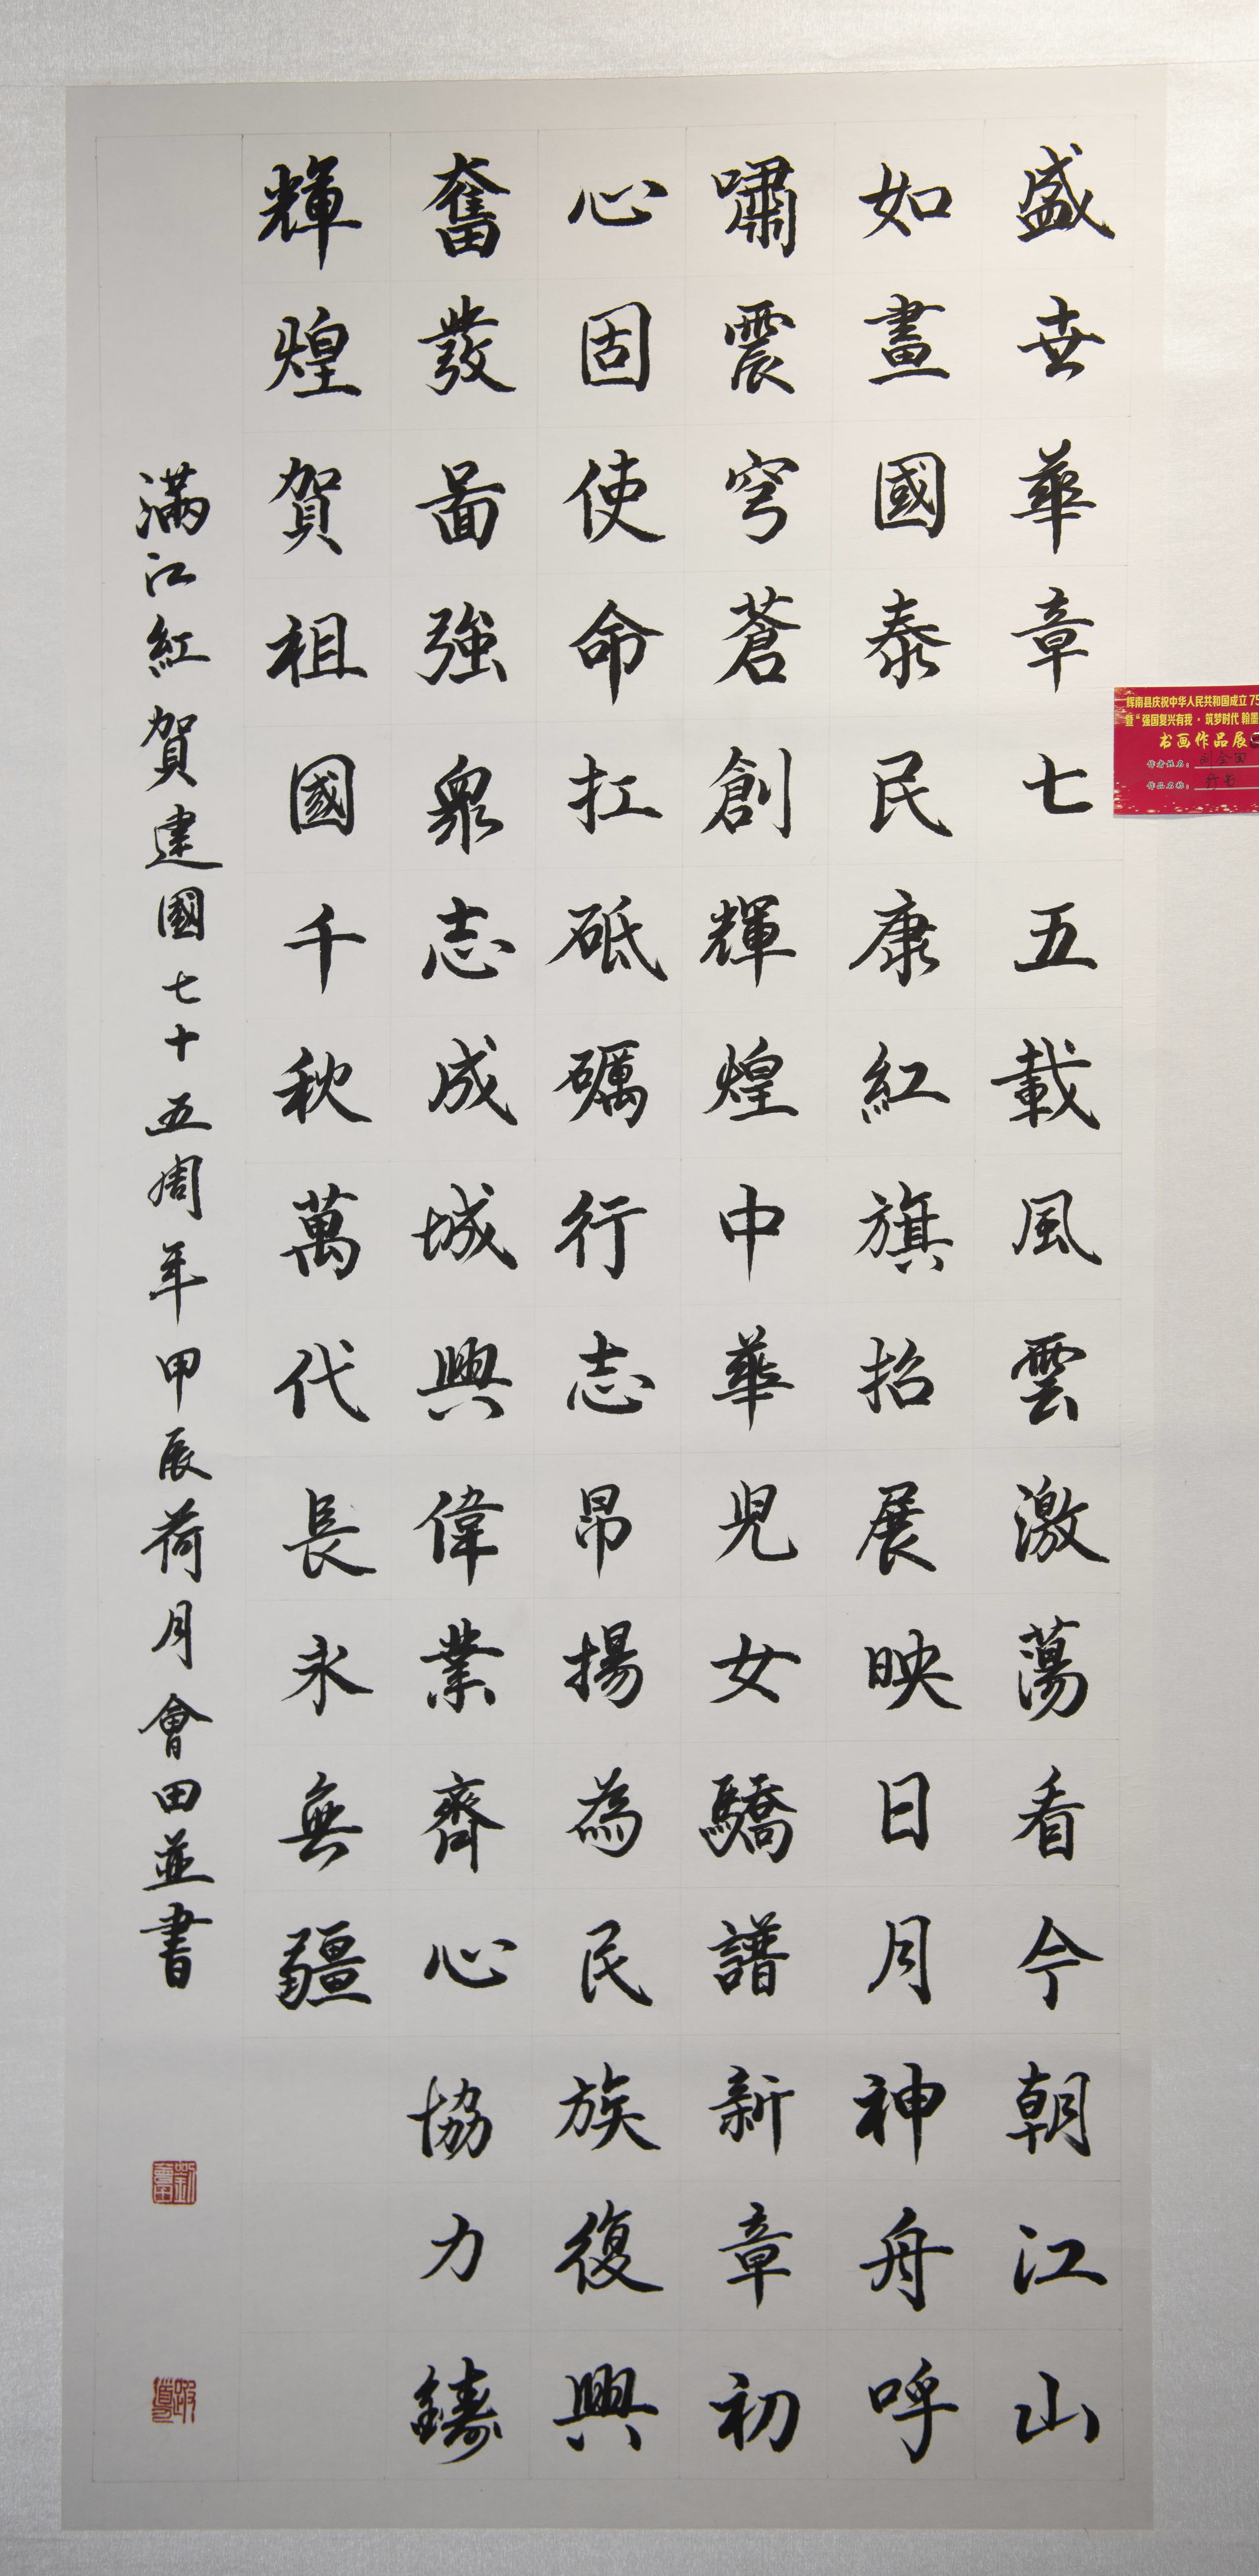 盛世華章七五載風雲激蕩看今朝江山
如畫國泰民康紅旗招展映日月神舟呼
嘯震穹蒼創輝煌中華兒女驕譜新章初
心固使命扛砥礪行志昂揚為民族復興
奮發圖強眾志成城興偉業齊心協力鑄
輝煌賀祖國千秋萬代長永無疆
滿江紅賀建國七十五周年甲辰荷月會田並書
劉會田
辉南县庆祝中华人民共和国成立75
暨“强国复兴有我·筑梦时代 翰墨
书画作品展
作者姓名：刘会田
作品名称：行书